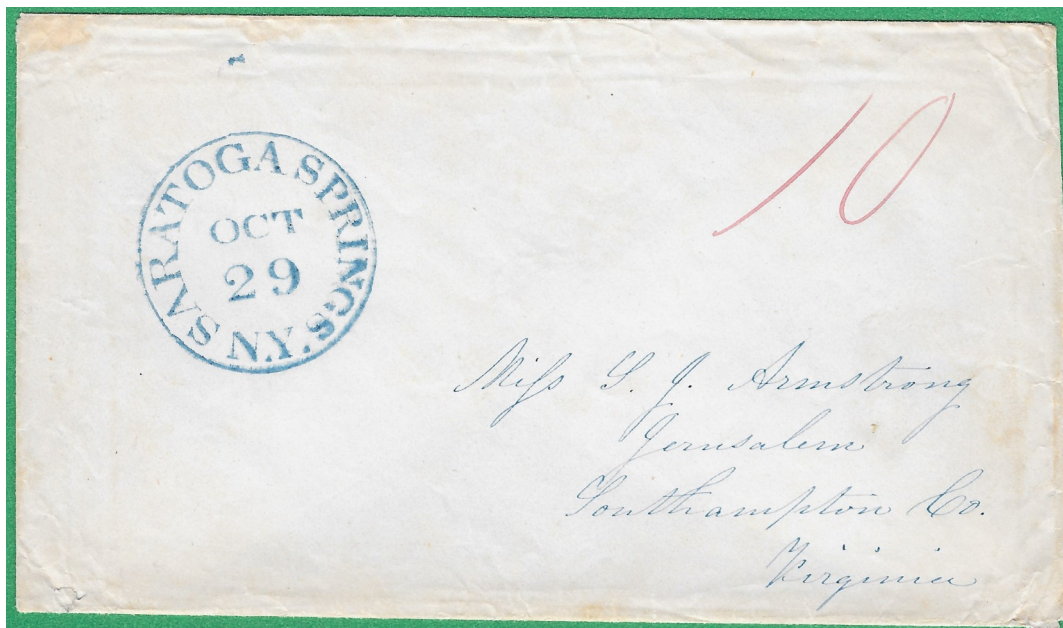 SARATOGA SPRINGS
OCT
29
N.Y.
10
Miss S. J. Armstrong
Jerusalem
Southampton Co.
Virginia